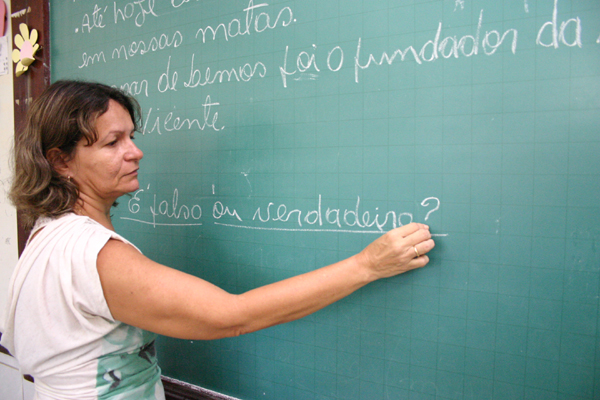 Até hoje
em nossas matas.
de bemos foi o fundador da
Vicente.
É falso ou verdadeiro?